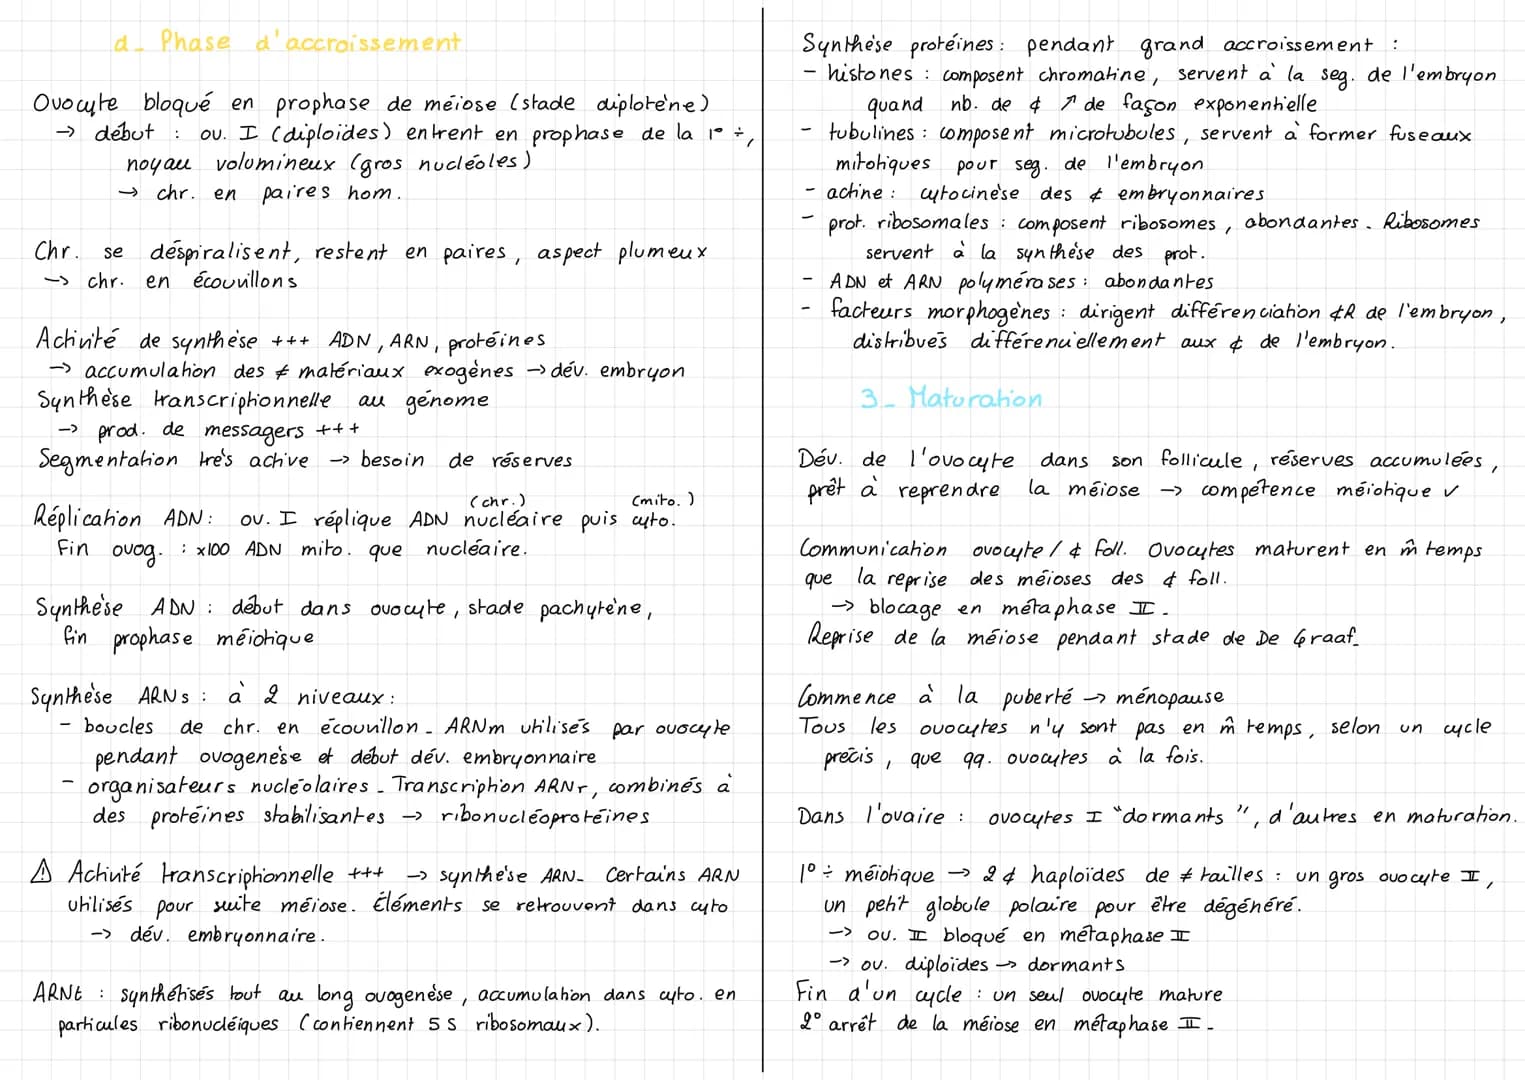 d_ Phase d'accroissement
Ovocyte bloqué en prophase de méiose (stade diplotène)
→ début : ov. I (diploïdes) entrent en prophase de la 1° ÷,
noyau volumineux (gros nucléoles)
→ chr. en paires hom.
Chr. se déspiralisent, restent en paires, aspect plumeux
→ chr. en écouvillons
Activité de synthèse +++ ADN, ARN, protéines
→ accumulation des ≠ matériaux exogènes → dév. embryon
Synthèse transcriptionnelle au génome
→ prod. de messagers +++
Segmentation très active → besoin de réserves
(chr.) (mito.)
Réplication ADN : ov. I réplique ADN nucléaire puis cyto.
Fin ovog. : x100 ADN mito. que nucléaire.
Synthèse ADN : début dans ovocyte, stade pachytène,
fin prophase méiotique
Synthèse ARNs : à 2 niveaux :
- boucles de chr. en écouvillon_ ARNm utilisés par ovocyte
pendant ovogenèse et début dév. embryonnaire
- organisateurs nucléolaires_ Transcription ARNr, combinés à
des protéines stabilisantes → ribonucléoprotéines
⚠ Activité transcriptionnelle +++ → synthèse ARN_ Certains ARN
utilisés pour suite méiose. Éléments se retrouvent dans cyto
→ dév. embryonnaire.
ARNt : synthétisés tout au long ovogenèse, accumulation dans cyto. en
particules ribonucléiques (contiennent 5 S ribosomaux).
Synthèse protéines : pendant grand accroissement :
- histones : composent chromatine, servent à la seg. de l'embryon
quand nb. de ¢ ↗ de façon exponentielle
- tubulines : composent microtubules, servent à former fuseaux
mitotiques pour seg. de l'embryon
- actine : cytocinèse des ¢ embryonnaires
- prot. ribosomales : composent ribosomes, abondantes. Ribosomes
servent à la synthèse des prot.
- ADN et ARN polymérases : abondantes
- facteurs morphogènes : dirigent différenciation ¢R de l'embryon,
distribués différenciellement aux ¢ de l'embryon.
3_ Maturation
Dév. de l'ovocyte dans son follicule, réserves accumulées,
prêt à reprendre la méiose → compétence méiotique ✓
Communication ovocyte / ¢ foll. Ovocytes maturent en m̂ temps
que la reprise des méioses des ¢ foll.
→ blocage en métaphase II_
Reprise de la méiose pendant stade de De Graaf_
Commence à la puberté → ménopause
Tous les ovocytes n'y sont pas en m̂ temps, selon un cycle
précis, que qq. ovocytes à la fois.
Dans l'ovaire : ovocytes I "dormants", d'autres en maturation.
1° ÷ méiotique → 2 ¢ haploïdes de ≠ tailles : un gros ovocyte II,
un petit globule polaire pour être dégénéré.
→ ov. II bloqué en métaphase II
→ ov. diploïdes → dormants
Fin d'un cycle : un seul ovocyte mature
2° arrêt de la méiose en métaphase II_